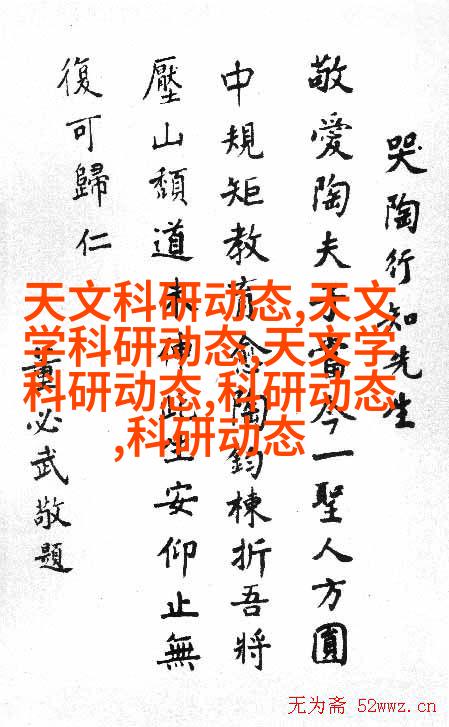 哭陶行知先生
敬愛陶夫子當今一聖人方圓
中規矩教育愈陶鈞棟折吾將
壓山頹道未伸此生安仰止無
復可歸仁
董必武敬題
天文科研动态,天文
学科研动态,天文学
科研动态,科研动态
,科研动态
无为斋 52wwz.cn